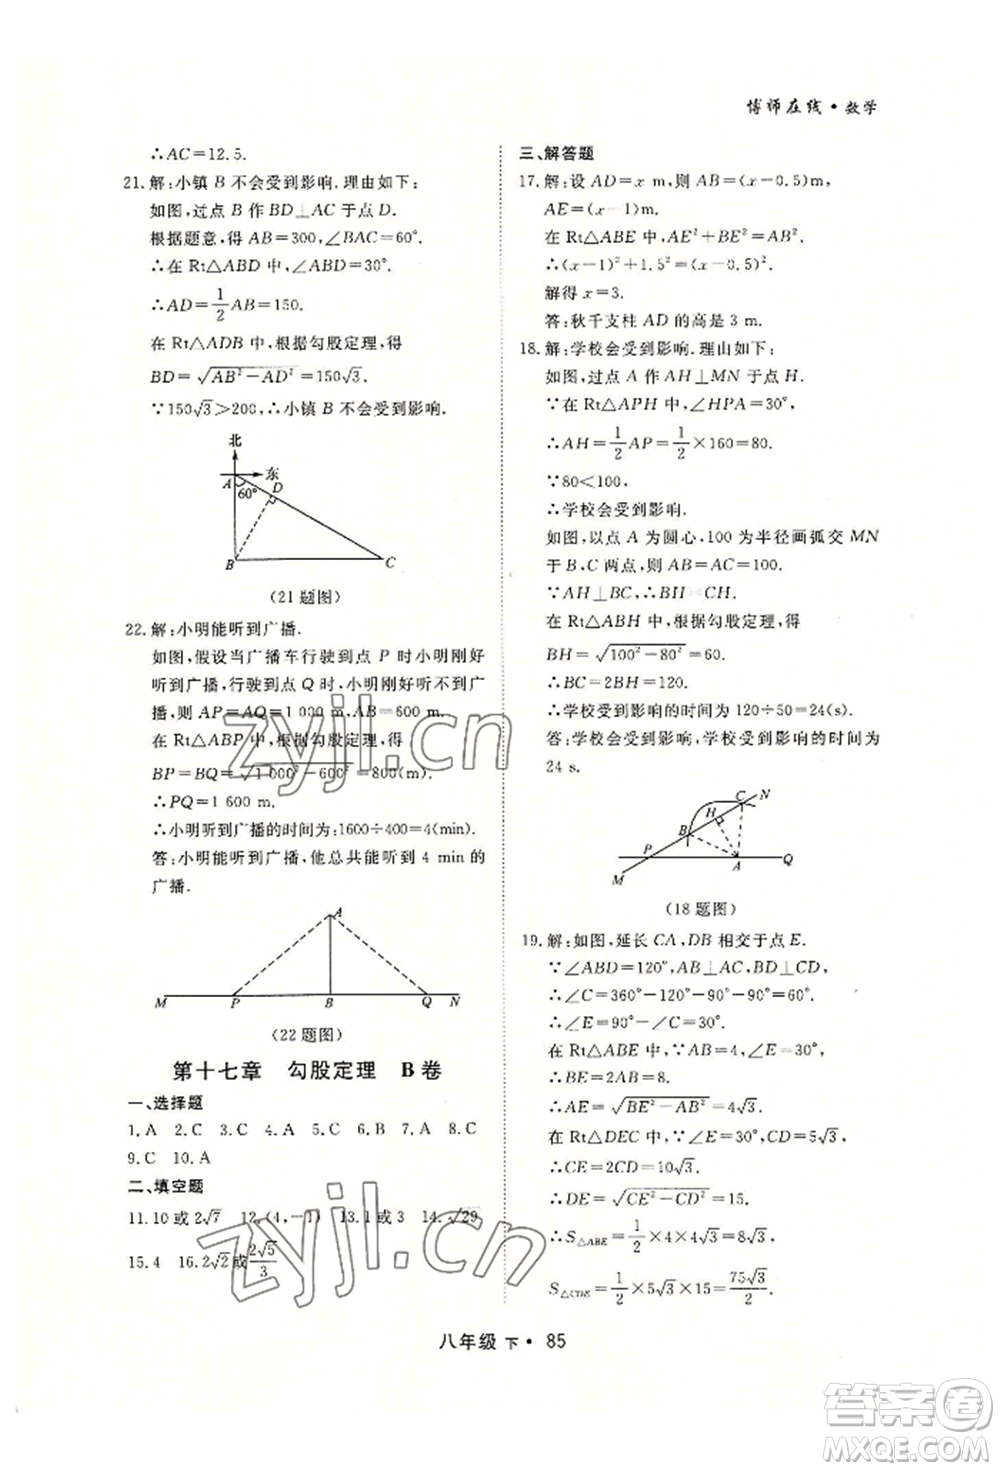 博师在线·数学
∴AC=12.5.
21.解:小镇 B 不会受到影响.理由如下:
如图,过点 B 作 BD⊥AC 于点 D.
根据题意,得 AB=300,∠BAC=60°.
∴在 Rt△ABD 中,∠ABD=30°.
∴AD=1/2AB=150.
在 Rt△ADB 中,根据勾股定理,得
BD=√(AB²-AD²)=150√3.
∵150√3>200,∴小镇 B 不会受到影响.
北
东
A
60°
D
B
C
(21 题图)
22.解:小明能听到广播.
如图,假设当广播车行驶到点 P 时小明刚好
听到广播,行驶到点 Q 时,小明刚好听不到广
播,则 AP=AQ=1 000 m,AB=600 m.
在 Rt△ABP 中,根据勾股定理,得
BP=BQ=√(1 000²-600²)=800(m).
∴PQ=1 600 m.
∴小明听到广播的时间为:1600÷400=4(min).
答:小明能听到广播,他总共能听到 4 min 的
广播.
A
M P B Q N
(22 题图)
第十七章 勾股定理 B 卷
一、选择题
1.A 2.C 3.C 4.A 5.C 6.C 7.A 8.C
9.C 10.A
二、填空题
11.10 或 2√7 12.(4,-1) 13.1 或 3 14.√29
15.4 16.2√2或2√5/3
三、解答题
17.解:设 AD=x m,则 AB=(x-0.5)m,
AE=(x-1)m.
在 Rt△ABE 中,AE²+BE²=AB².
∴(x-1)²+1.5²=(x-0.5)².
解得 x=3.
答:秋千支柱 AD 的高是 3 m.
18.解:学校会受到影响.理由如下:
如图,过点 A 作 AH⊥MN 于点 H.
∵在 Rt△APH 中,∠HPA=30°,
∴AH=1/2AP=1/2×160=80.
∵80<100,
∴学校会受到影响.
如图,以点 A 为圆心,100 为半径画弧交 MN
于 B、C 两点,则 AB=AC=100.
∵AH⊥BC,∴BH=CH.
在 Rt△ABH 中,根据勾股定理,得
BH=√(100²-80²)=60.
∴BC=2BH=120.
∴学校受到影响的时间为 120÷50=24(s).
答:学校会受到影响,学校受到影响的时间为
24 s.
C N
H
B
P
A
Q
M
(18 题图)
19.解:如图,延长 CA,DB 相交于点 E.
∵∠ABD=120°,AB⊥AC,BD⊥CD,
∴∠C=360°-120°-90°-90°=60°.
∴∠E=90°-∠C=30°.
在 Rt△ABE 中,∵AB=4,∠E=30°,
∴BE=2AB=8.
∴AE=√(BE²-AB²)=4√3.
在 Rt△DEC 中,∵∠E=30°,CD=5√3,
∴CE=2CD=10√3.
∴DE=√(CE²-CD²)=15.
∴S△ABE=1/2×4×4√3=8√3,
S△CDE=1/2×5√3×15=75√3/2.
八年级 下·85
zyjl.cn
zyjl.cn
答案圈
MXQE.COM